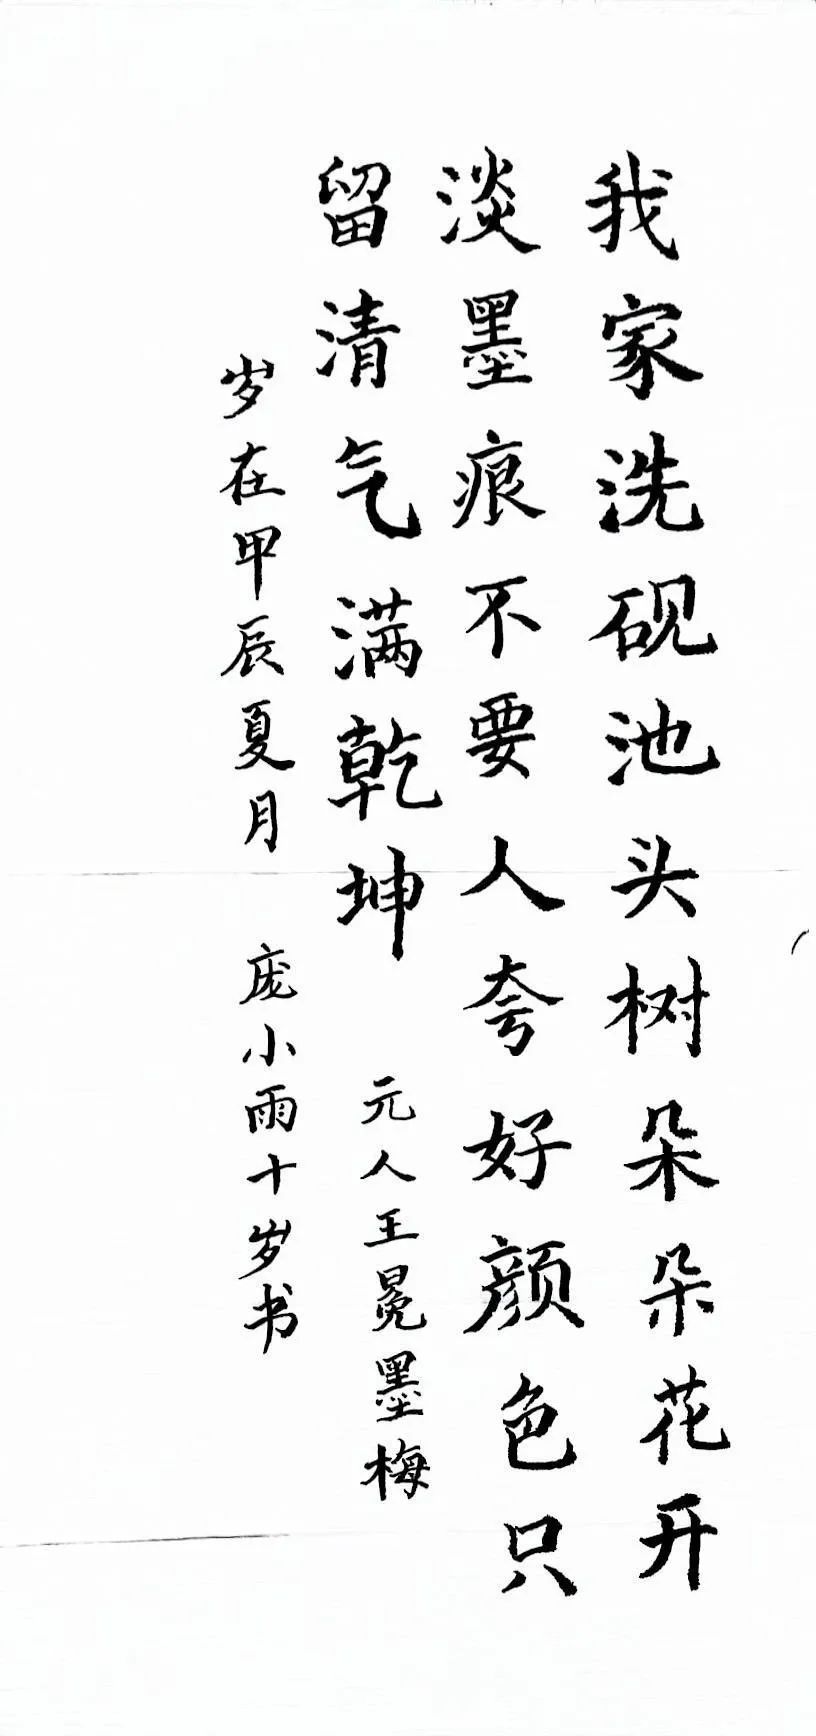 我家洗砚池头树朵朵花开
淡墨痕不要人夸好颜色只
留清气满乾坤
元人王冕墨梅
岁在甲辰夏月
庞小雨十岁书